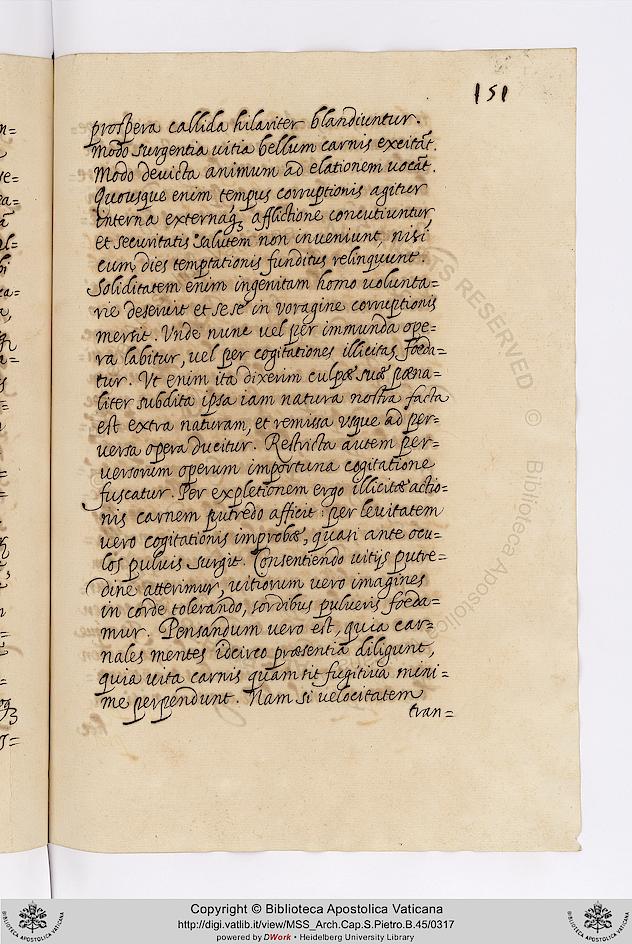 151
prospera callida hilariter blandiuntur.
Modo surgentia uitia bellum carnis excitāt.
Modo deuicta animum ad elationem uocāt.
Quousque enim tempus corruptionis agitur
interna externaq; afflictione concutiuntur,
et securitatis salutem non inueniunt, nisi
cum dies temptationis funditus relinquunt.
Soliditatem enim ingenitam homo volunta=
rie deseruit et sese in voragine corruptionis
mersit. Vnde nunc uel per immunda ope=
ra labitur, uel per cogitationes illicitas foeda=
tur. Vt enim ita dixerim culpæ suæ pæna=
liter subdita ipsa iam natura nostra facta
est extra naturam, et remissa usque ad per=
uersa opera ducitur. Restricta autem per=
uersorum operum importuna cogitatione
fuscatur. Per expletionem ergo illicitæ actio=
nis carnem putredo afficit: per leuitatem
uero cogitationis improbæ, quasi ante ocu=
los puluis surgit. Consentiendo uitijs putre=
dine atterimur, uitiorum uero imagines
in corde tolerando, sordibus pulueris foeda=
mur. Pensandum uero est, quia car=
nales mentes idcirco præsentia diligunt,
quia uita carnis quam sit fugitiua mini=
me perpendunt. Nam si uelocitatem
tran=
RIGHTS RESERVED © Biblioteca Apostolica
Copyright © Biblioteca Apostolica Vaticana
http://digi.vatlib.it/view/MSS_Arch.Cap.S.Pietro.B.45/0317
powered by DWork • Heidelberg University Library